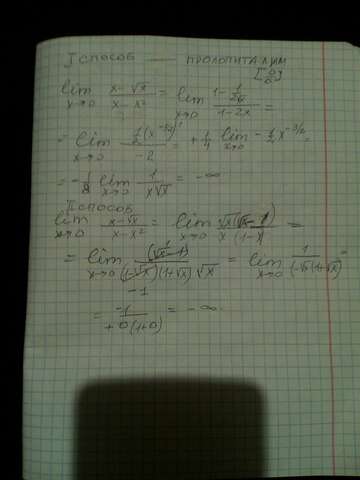 I СПОСОБ — ПРОЛОПИТАЛИМ
[0/0]
lim x→0 (x-√x)/(x-x²) = lim x→0 (1-1/(2√x))/(1-2x) =
= lim x→0 / -2 = + 1/4 lim x→0 - 1/2 x^(-3/2) =
= -1/8 lim x→0 1/(x√x) = -∞
II СПОСОБ
lim x→0 (x-√x)/(x-x²) = lim x→0 √x(√x-1)/(x(1-x)) =
= lim x→0 (√x-1)/((1-√x)(1+√x)√x) = lim x→0 1/(-√x(1+√x)) =
-1
= -1/(+0(1+0)) = -∞.